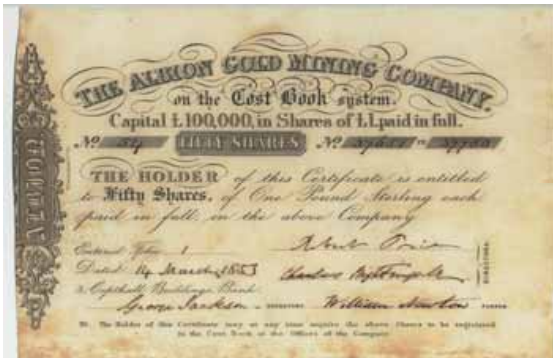 THE ALBION GOLD MINING COMPANY.
on the Cost Book system.
Capital £100,000, in Shares of £1, paid in full.
No FIFTY SHARES No to
THE HOLDER of this Certificate is entitled
to Fifty Shares, of One Pound Sterling each
paid in full, in the above Company
Entered Folio 1 Robert
Dated 14 March Charles Nightingale
3, Copthall Buildings, Bank
George Jackson SECRETARY William Newton PURSER
DIRECTORS
NB. The Holder of this Certificate may at any time require the above Shares to be registered
in the Cost Book at the Offices of the Company
ALBION